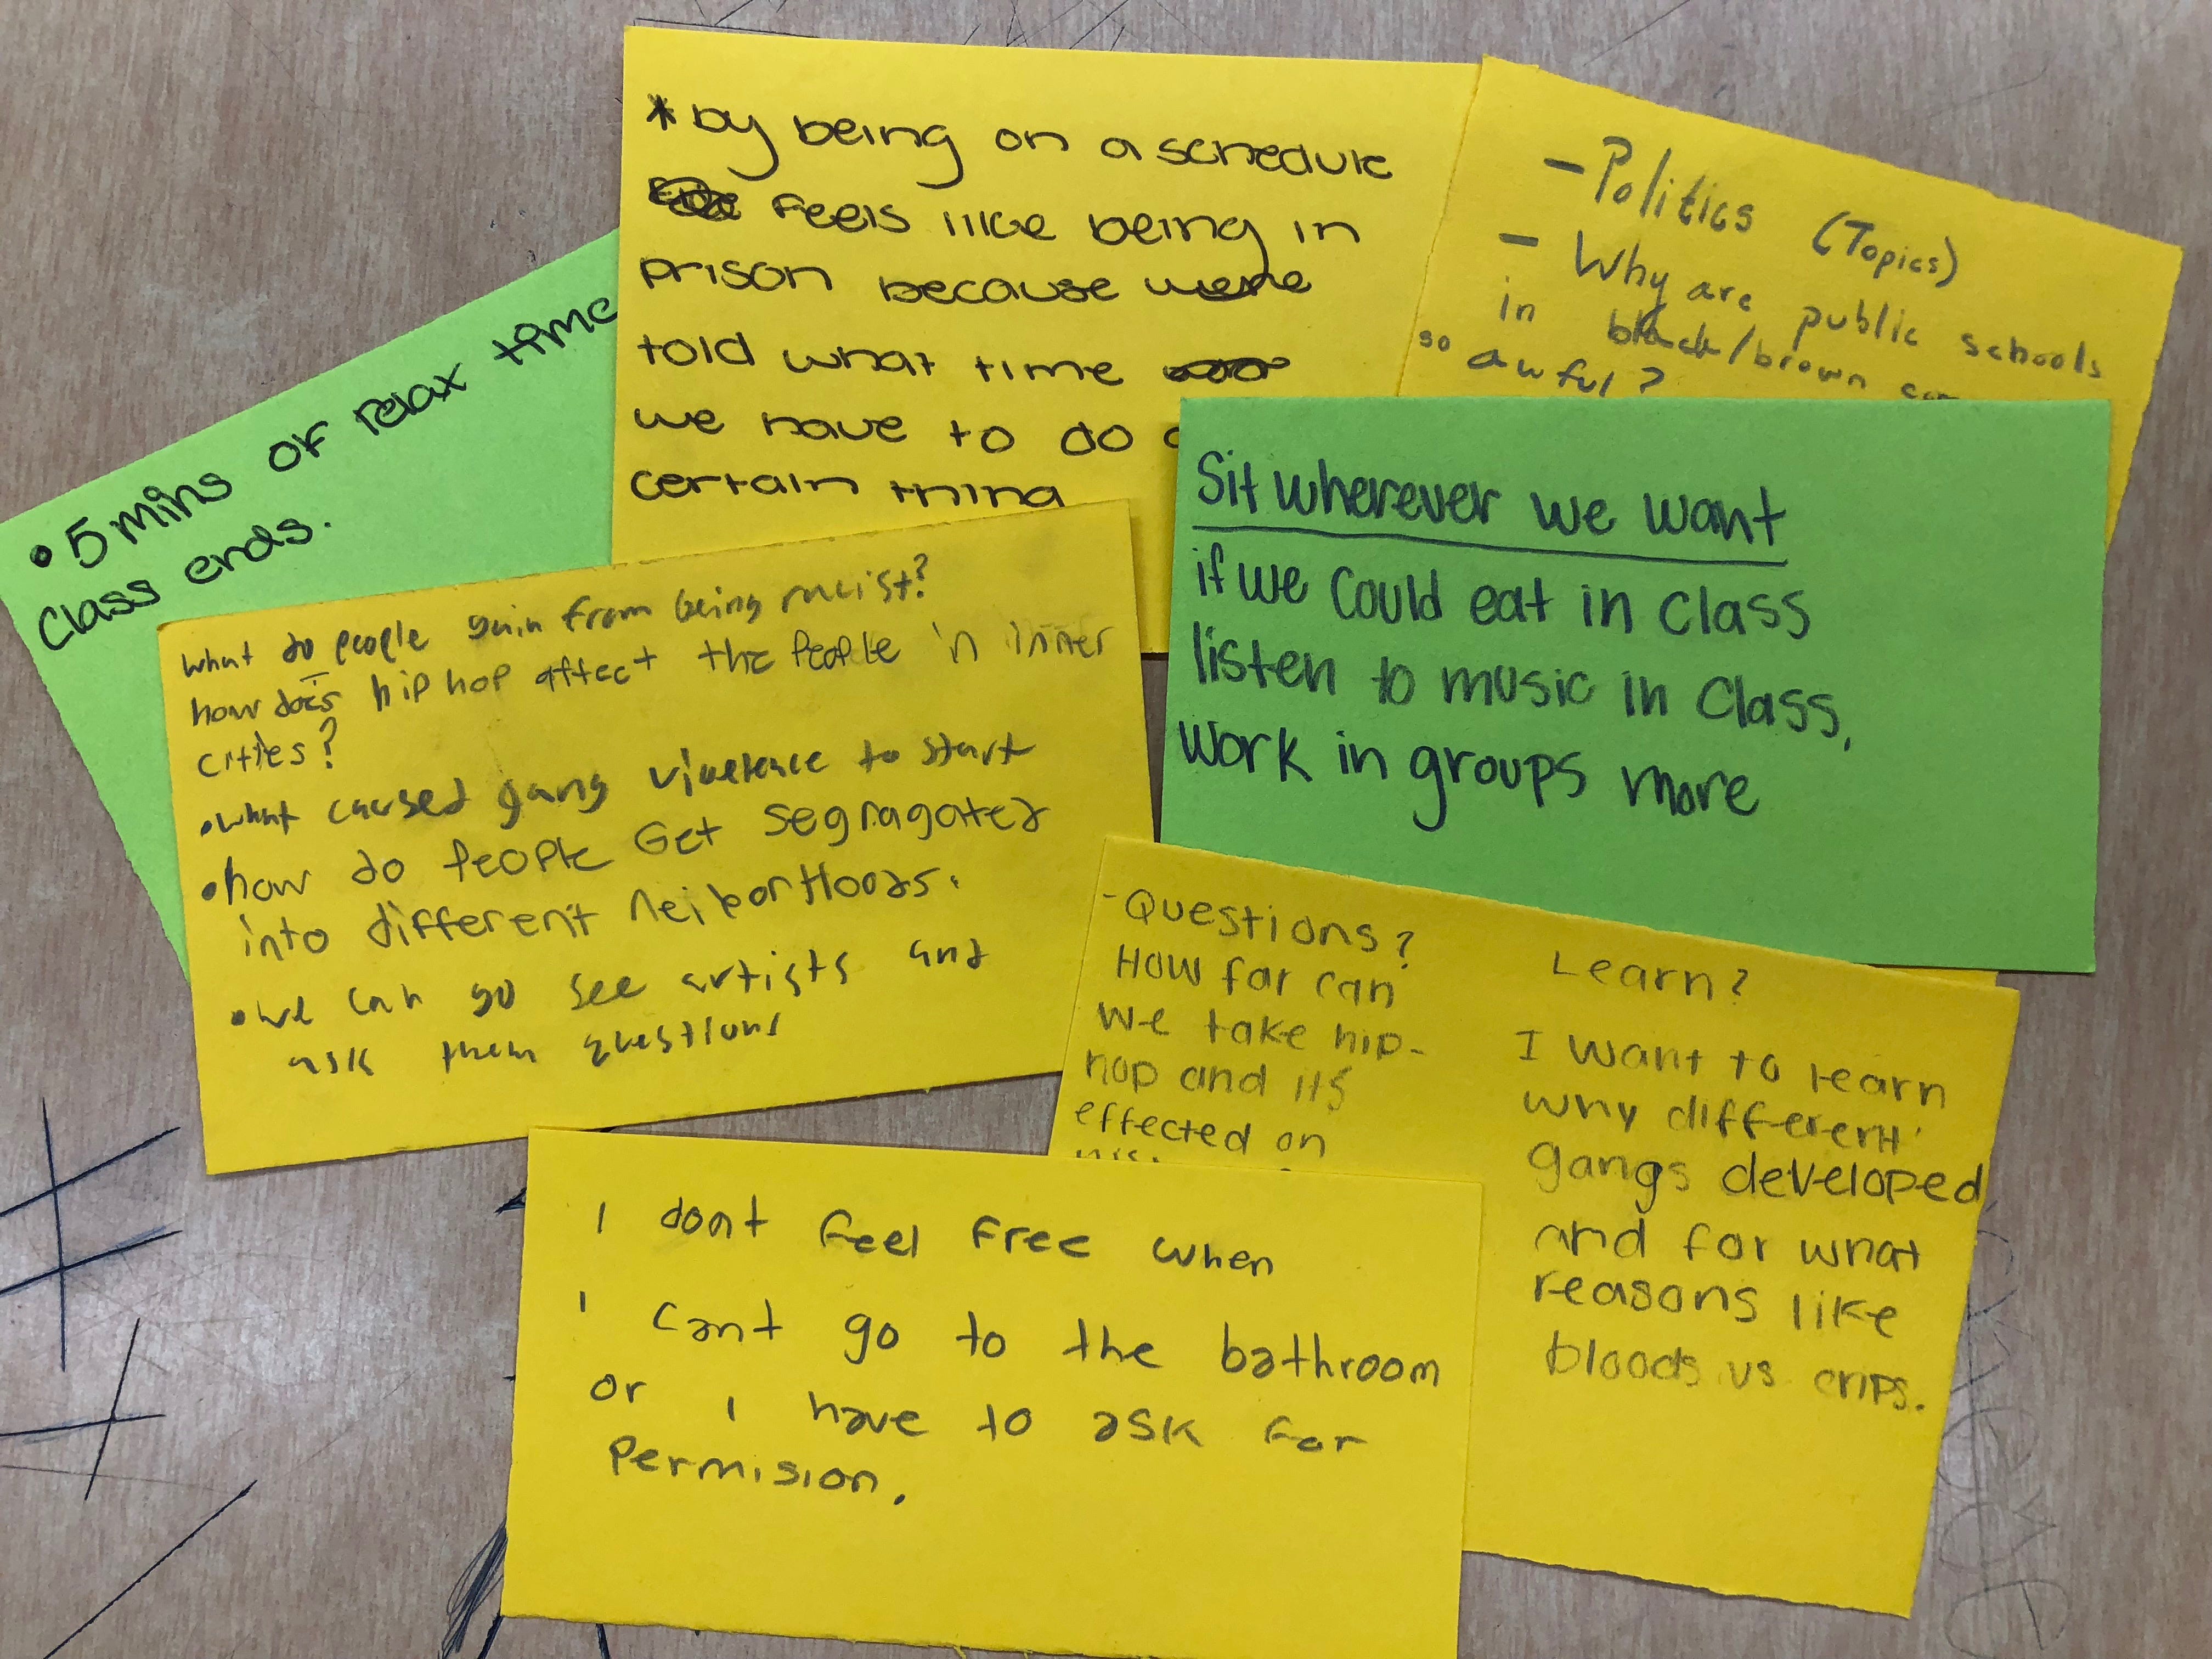 *by being on a schedule
feels like being in
prison because were
told what time
we have to do
certain thing
- Politics (Topics)
- Why are public schools
in black/brown
so awful?
• 5 mins of relax time
class ends.
Sit wherever we want
if we could eat in class
listen to music in class,
work in groups more
what do people gain from being racist?
how does hip hop affect the people in inner
cities?
• what caused gang to start
• how do people Get segragated
into different neiborHoods.
• we can go see artists and
ask them questions
- Questions?
How far can
we take hip-
hop and its
effected on
Learn?
I want to learn
why different
gangs developed
and for what
reasons like
bloods vs crips.
I dont feel free when
I cant go to the bathroom
or I have to ask for
Permision.